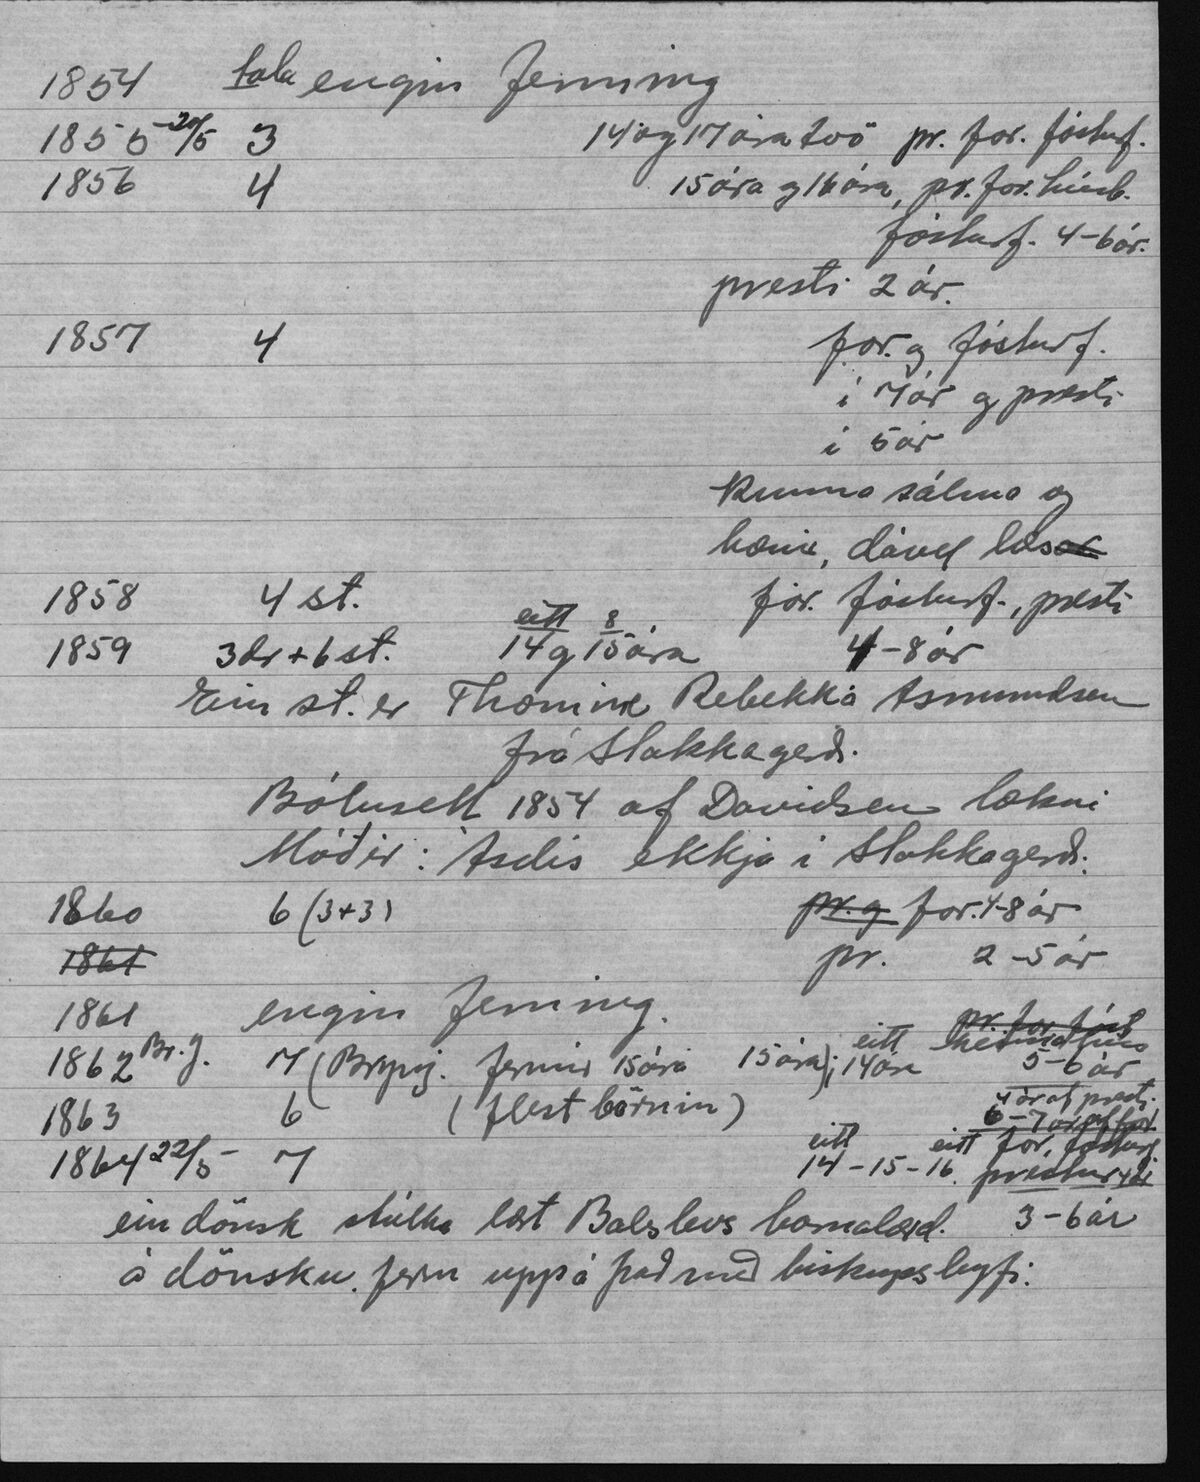 1854 tala engin ferming
1855 20/5 3 14 og 17 ára tvö pr. for. fósturf.
1856 4 15 ára og 16 ára, pr. for. húsb.
fósturf. 4-6 ár.
presti 2 ár.
1857 4 for. og fósturf.
í 7 ár og presti
í 5 ár
kunna sálma og
bænir, dável læsar
1858 4 st. for. fósturf., presti
eitt 8
1859 3 dr + 6 st. 14 og 15 ára 4-8 ár
Ein st. er Thomine Rebekka Asmundsen
frá Stakkagerði.
Bólusett 1854 af Davidsen lækni
Móðir: Ásdis ekkja í Stakkagerði.
1860 6 (3+3) pr. og for. 4-8 ár
1861 pr. 2-5 ár
1861 engin ferming.
pr. for. fóst
1862 Br. J. 7 (Brynj. fermir 15 ára 15 ára); eitt 14 ára 5-6 ár
1863 6 (flest börnin) 4 ár af presti.
6-7 ár af for.
1864 22/5 7 eitt 14-15-16. eitt for. fósturf.
prestur
ein dönsk stúlka lært Balslevs barnalærd. 3-6 ár
á dönsku. ferm uppá það með biskupsleyfi.